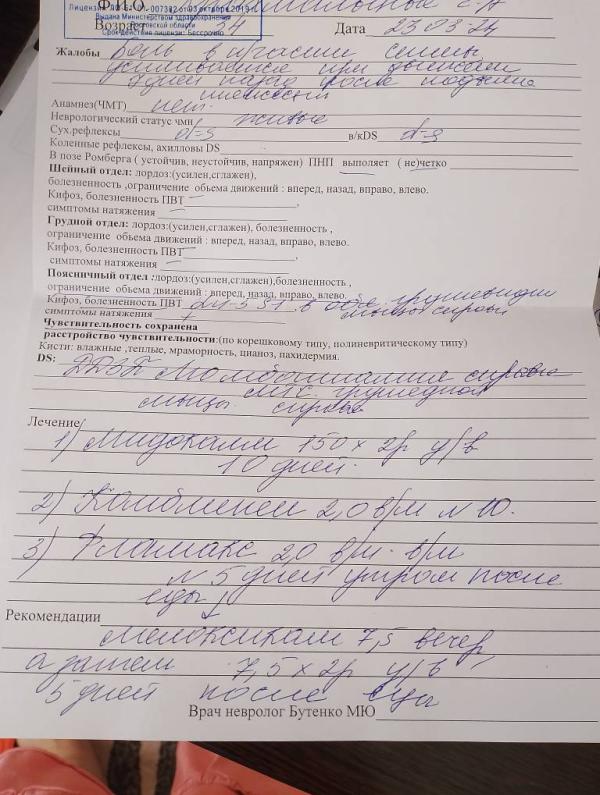 Ф.И.О.
Лицензия
007382 от 03 октября 2019 г.
Выдана Министерством здравоохранения
Ростовской области
Срок действия лицензии: Бессрочно
Возраст 34 Дата 23 03 24
Жалобы Боль в
усиливается при движении
после поднятия
тяжести
Анамнез(ЧМТ) нет.
Неврологический статус чмн живые
Сух.рефлексы d=s в/кDS d=s
Коленные рефлексы, ахилловы DS
В позе Ромберга ( устойчив, неустойчив, напряжен) ПНП выполяет ( не)четко
Шейный отдел: лордоз:(усилен,сглажен),
болезненность ,ограничение обьема движений : вперед, назад, вправо, влево.
Кифоз, болезненность ПВТ –,
симптомы натяжения –
Грудной отдел: лордоз:(усилен,сглажен), болезненность ,
ограничение обьема движений : вперед, назад, вправо, влево.
Кифоз, болезненность ПВТ –,
симптомы натяжения –
Поясничный отдел :лордоз:(усилен,сглажен),болезненность ,
ограничение обьема движений : вперед, назад, вправо, влево.
Кифоз, болезненность ПВТ S1 в обл. грушевидн
симптомы натяжения + мышцы справа
Чувствительность сохранена
расстройство чувствительности:(по корешковому типу, полиневритическому типу)
Кисти: влажные ,теплые, мраморность, цианоз, пахидермия.
DS: ДДЗП Люмбоишиалгия справа
МТС грушевидной
мышцы справа
Лечение
1) Мидокалм 150 х 2р у/в
10 дней.
2) Комбилипен 2,0 в/м N 10.
3) Фламакс 2,0 в/м в/м
N 5 дней утром после
еды
Рекомендации
Мелоксикам 7,5 вечер,
а затем 7,5 х 2р у/в
5 дней после еды
Врач невролог Бутенко МЮ